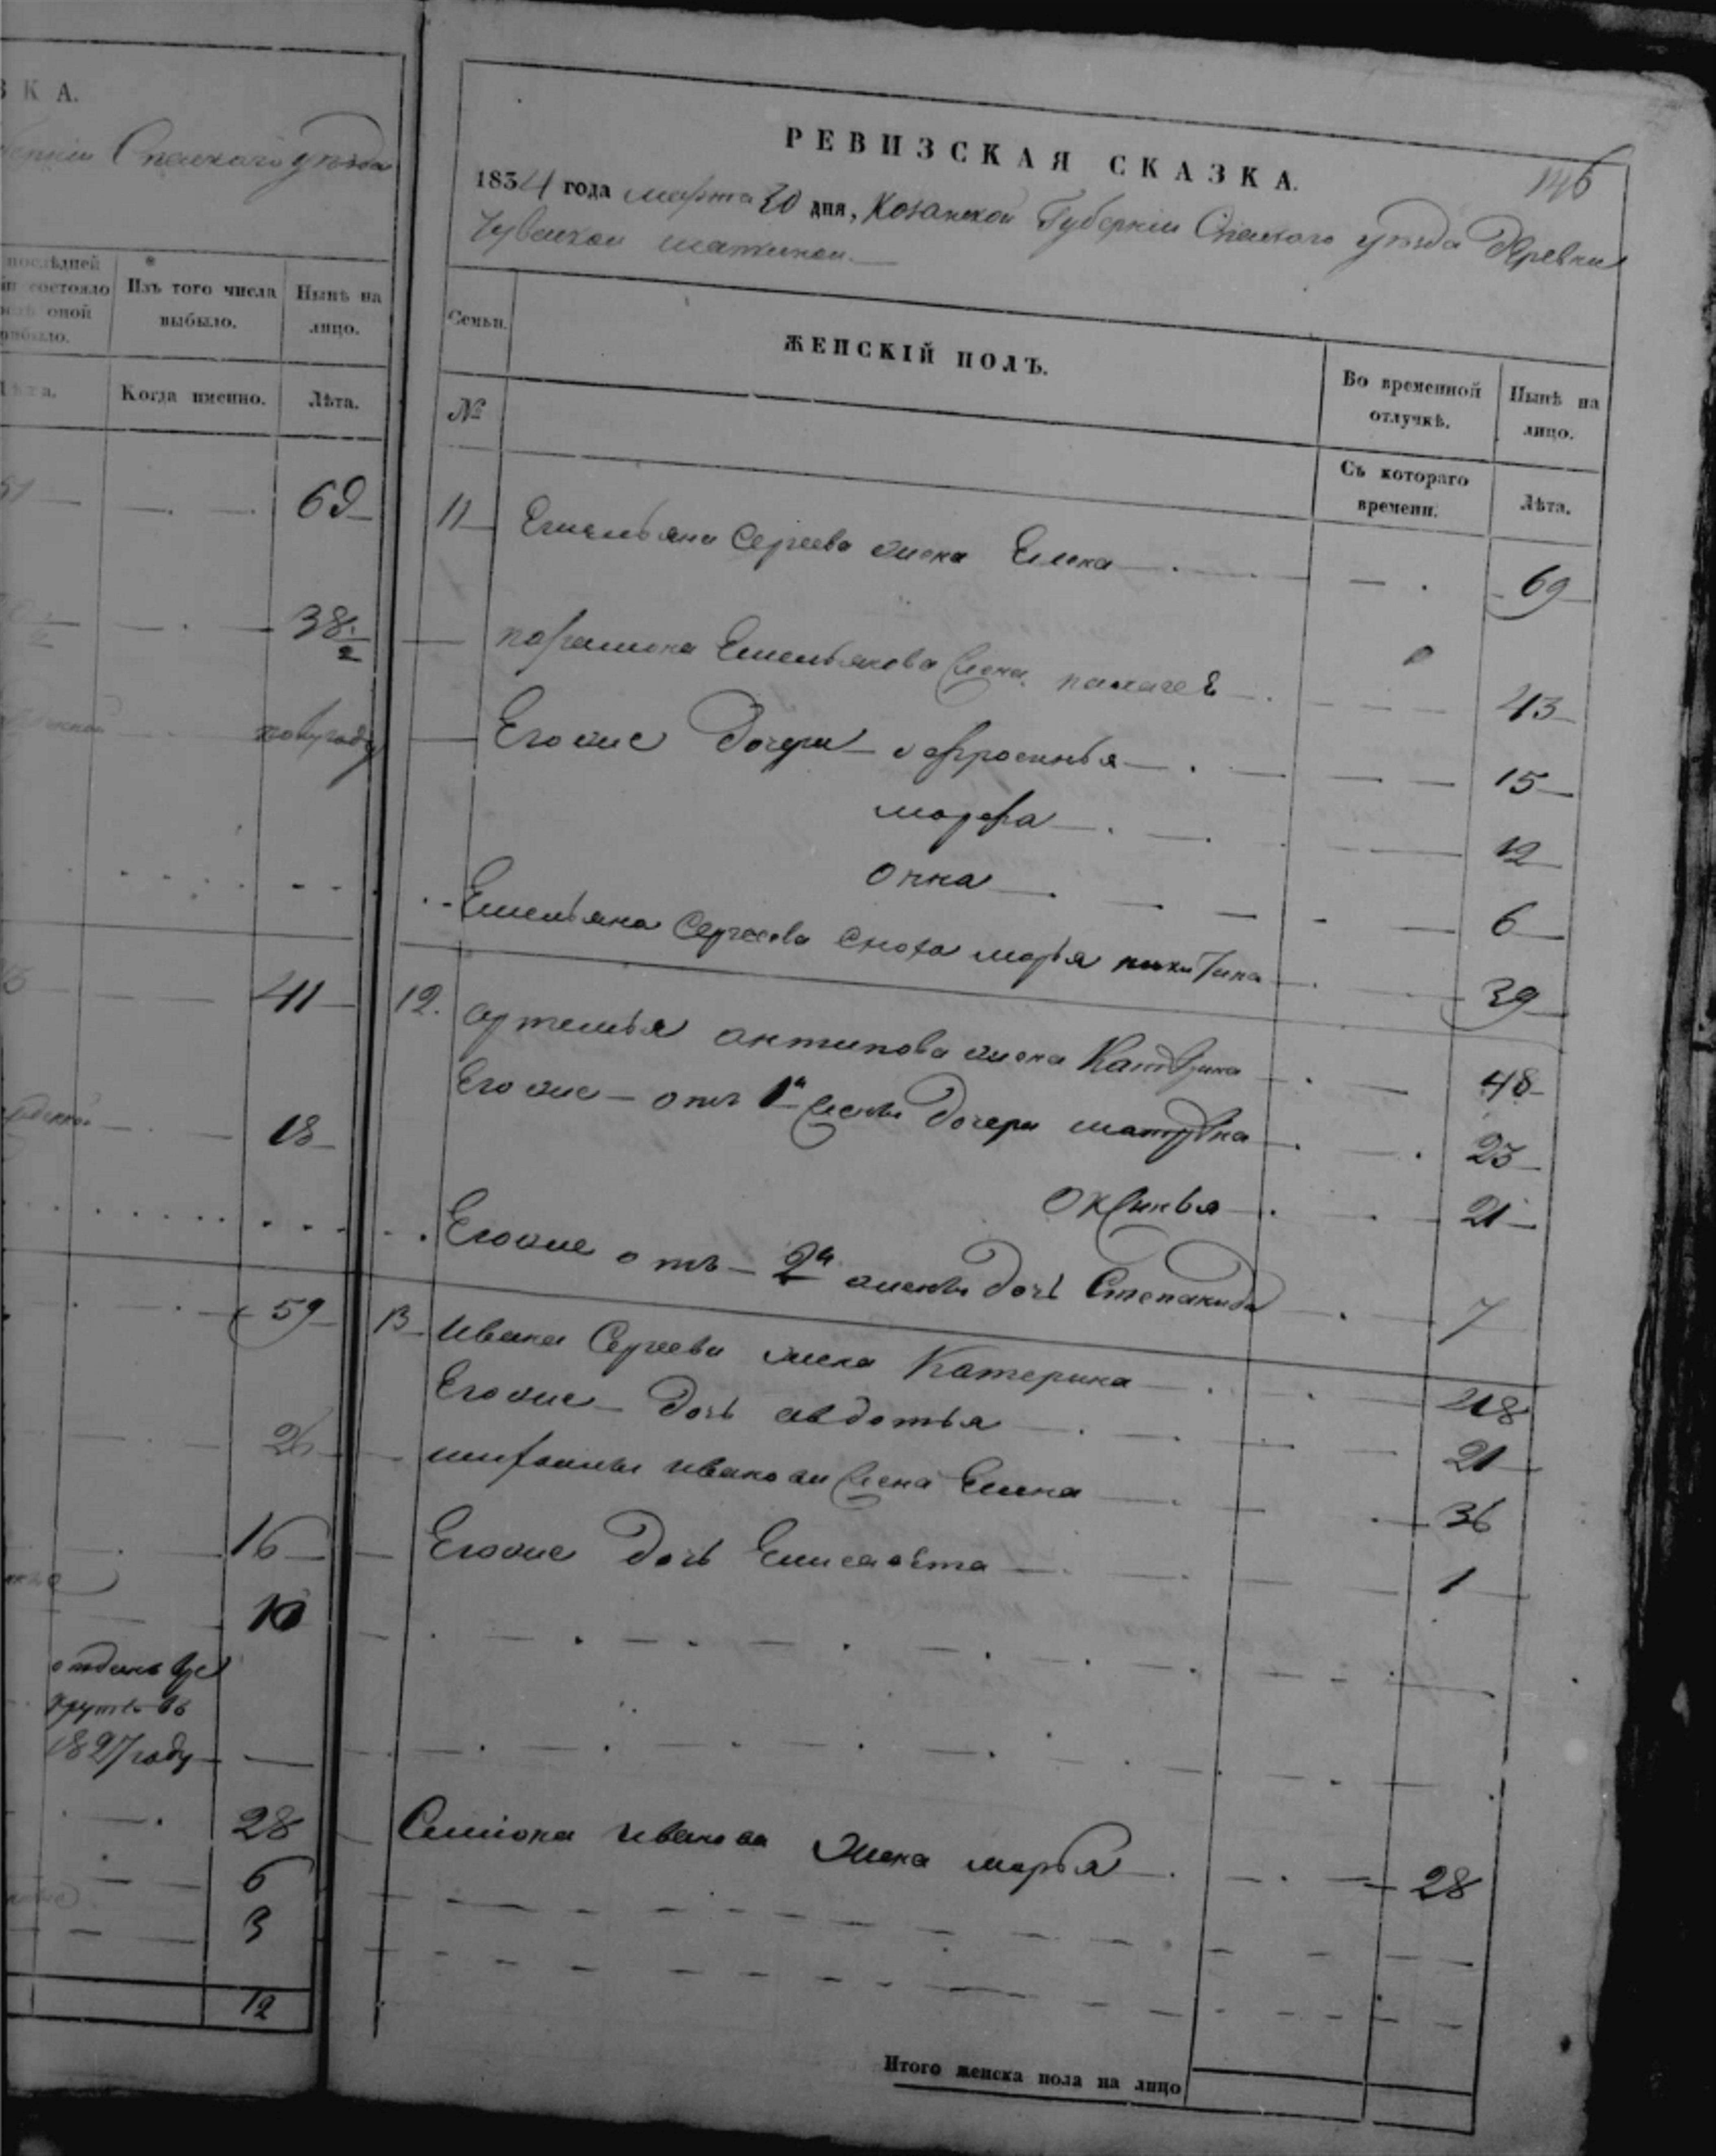 К А.
Спаского уѣзда
послѣдней
состояло
оной
Изъ того числа
выбыло.
Нынѣ на
лицо.
Когда именно.
Лѣта.
69
38 1/2
полугоду
41
18
59
26
16
10
отданъ
въ
1827 году
28
6
3
12
146
РЕВИЗСКАЯ СКАЗКА.
1834 года марта 30 дня, Козанской Губернiи Спаского уѣзда Деревни
Чувской
Семьи.
ЖЕНСКІЙ ПОЛЪ.
Во временной
отлучкѣ.
Нынѣ на
лицо.
№
Съ котораго
времени.
Лѣта.
11 Емельяна Сергеева жена Елена 69
Емельянова жена 43
Егожѣ Дочери офросинья 15
марфа 12
Онна 6
Емельяна Сергеева сноха марья никитина 39
12. артемья антипова жена Катерина 48
Егоже отъ 1й жены Дочери матрѣна 23
Оксинья 21
Егоже отъ 2й жены дочь Степанида 7
13 Ивана Сергеева жена Катерина 48
Егоже дочь авдотья 21
иванова жена Елена 36
Егоже дочь Елисавета 1
Семiона иванова жена марья 28
Итого женска пола на лицо